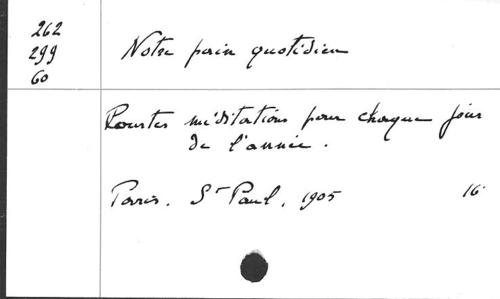 262
299
60
Notre pain quotidien
Courtes méditations pour chaque jour
de l'année.
Paris. St Paul, 1905 16